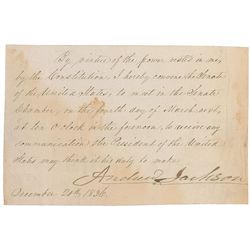 By virtue of the power vested in me,
by the Constitution, I hereby convene the Senate
of the United States, to meet in the Senate
Chamber, on the fourth day of March next,
at ten O'clock in the forenoon, to receive any
communication the President of the United
States may think it his duty to make.
Andrew Jackson
December 20th, 1836.